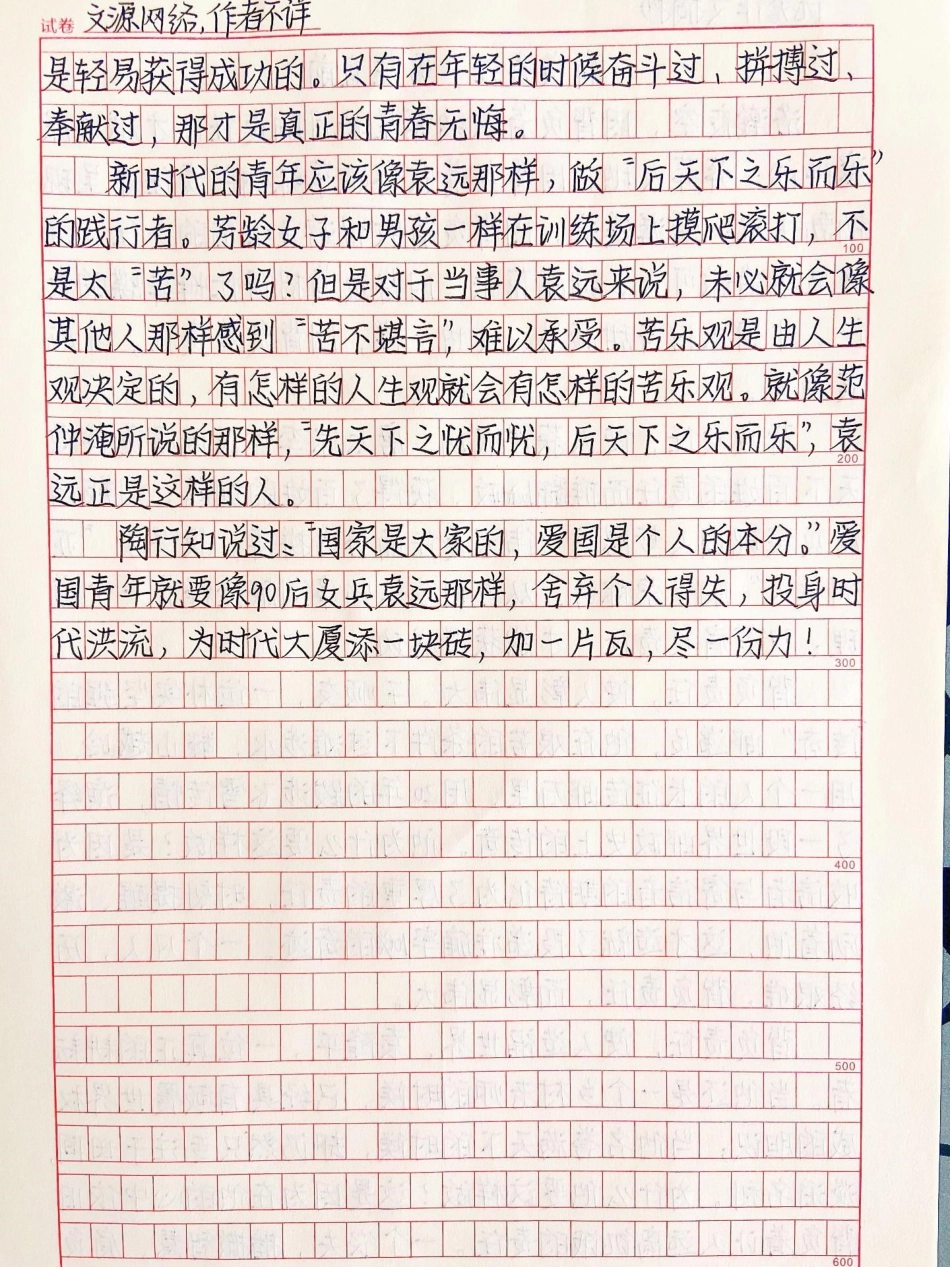 试卷 文源网络,作者不详
是轻易获得成功的。只有在年轻的时候奋斗过、拼搏过、
奉献过,那才是真正的青春无悔。
新时代的青年应该像袁远那样,做“后天下之乐而乐”
的践行者。芳龄女子和男孩一样在训练场上摸爬滚打,不
100
是太“苦”了吗?但是对于当事人袁远来说,未必就会像
其他人那样感到“苦不堪言”,难以承受。苦乐观是由人生
观决定的,有怎样的人生观就会有怎样的苦乐观。就像范
仲淹所说的那样,“先天下之忧而忧,后天下之乐而乐”,袁
200
远正是这样的人。
陶行知说过:“国家是大家的,爱国是个人的本分。”爱
国青年就要像90后女兵袁远那样,舍弃个人得失,投身时
代洪流,为时代大厦添一块砖,加一片瓦,尽一份力!
300
400
500
600